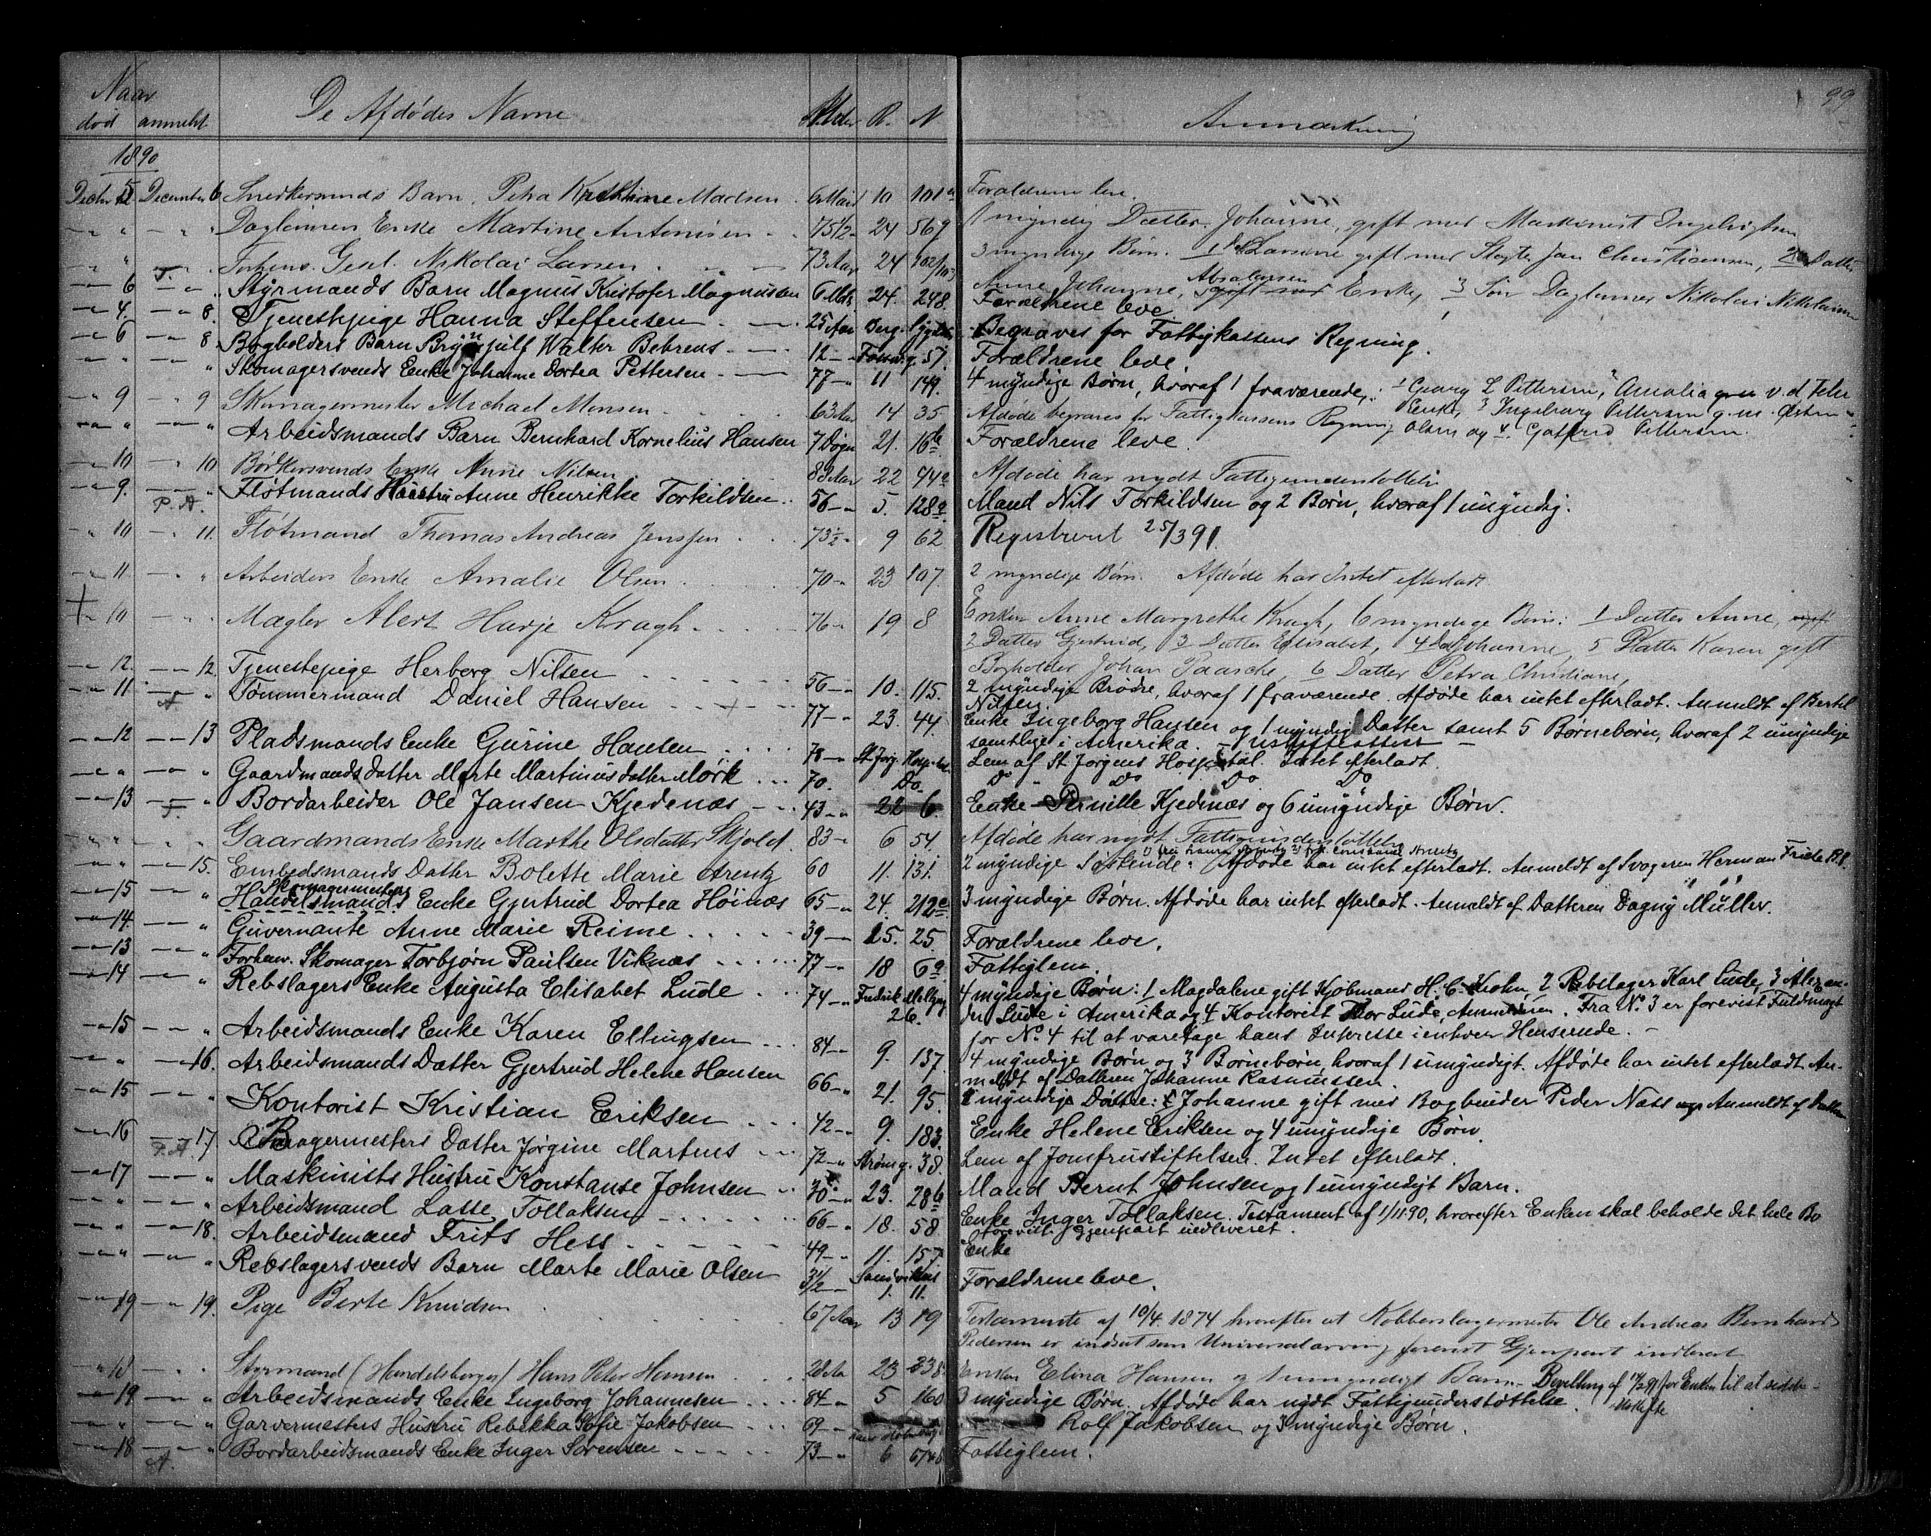 99
Naar De Afdødes Navne Alder R. N Anmærkning
død anmeldt
1890
Decbr 5 December 6 Snedkersvends Barn, Petra Kristine Madsen 6 Maan 10 101a Forældrene leve.
Dagleiners Enke Martine Antonisen 75 1/2 24 569 1 myndig Datter Johanne, gift med Maskinist Ingebrigtsen
Forhens. Gesel. Nikolai Larsen 73 Aar 24 3 myndige Børn. 1 Larsine gift med Jan Christiansen, 2 Datter
Anne Johanne, Absalonsen Enke, 3 Søn Dagleiner Nikolai Nikolaisen
6 Styrmands Barn Magnus Kristofer Magnussen 6 Mdr. 24. 248. Forældrene leve
4. 8. Tjenestepige Hanna Steffensen 25 Aar Berg. Begraves for Fattigkassens Regning.
6 8 Bogholders Barn Brynjulf Walter Behrens 12 57. Forældrene leve.
Skomagersvends Enke Johanne Dortea Pettersen 77 11 149. 4 myndige Børn, hvoraf 1 fraværende, 1 Georg L Pettersen, Amalia v. d. Felen
Enke, 3 Ingeborg Pettersen g. m. Østen
9 9 Skomagermester Michael Monsen 63 Aar 14 35 Afdøde begraves for Fattigkassens Regning Olsen og 4. Gotfred Pettersen.
Arbeidsmands Barn Bernhard Kornelius Hansen 7 Døgn 21. 16b Forældrene leve.
10 10 Bødkersvends Enke Anne Nilsen 83 Aar 22 94a Afdøde har nydt Fattigunderstøttelse
9. P. A. Fløtmands Hustru Anne Henrikke Torkildsen 56 5. 128a. Mand Nils Torkildsen og 2 Børn, hvoraf 1 umyndig.
10 11. Fløtmand Thomas Andreas Jenssen 73 1/2 9 62 Registreret 25/3 91.
11. Arbeiders Enke Amalie Olsen 70 23 107 2 myndige Børn. Afdøde har Intet efterladt
10 Mægler Alert Harje Kragh 76 19 8 Enken Anne Margrethe Kragh, 6 myndige Børn: 1 Datter Anne,
2 Datter Gjertrud, 3 Datter Elisabet, 4 Johanne, 5 Datter Karen gift
Bogholder Johan Paasche, 6 Datter Petra Christiane,
12. 12. Tjenestepige Herborg Nilsen 56 10. 115. 2 myndige Brødre, hvoraf 1 fraværende. Afdøde har intet efterladt. Anmeldt af Bertel
Nilsen.
11 A Tømmermand Daniel Hansen 77 23. 44. Enke Ingeborg Hansen og 1 myndig Datter samt 5 Børnebørn, hvoraf 2 umyndige
samtlige i Amerika.
12 13 Pladsmands Enke Gurine Hansen 78 St Jørg. Hosp. Lem af St Jørgens Hospital. Intet efterladt.
Gaardmands Datter Marte Martinusdatter Mørk 70. Do. Do Do Do Do
13 F. Bordarbeider Ole Jansen Kjedenæs 43 22 6. Enke Pernille Kjednæs og 6 umyndige Børn.
Gaardmands Enke Marthe Olsdatter Skjold 83 6 54. Afdøde har nydt Fattigunderstøttelse
15. Embedsmands Datter Bolette Marie Arentz 60 11. 131. 2 myndige Søskende. Afdøde har intet efterladt. Anmeldt af Svogeren Herman Friele
Skomagermesters
15 Handelsmands Enke Gjertrud Dortea Høinæs 65 24. 212c 3 myndige Børn. Afdøde har intet efterladt. Anmeldt af Datteren Dagny Müller.
14. Guvernante Anne Marie Reime 39 15. 25. Forældrene leve.
13 Forhenv. Skomager Torbjørn Paulsen Viknæs 77 18 6a Fattiglem.
14 Rebslagers Enke Augusta Elisabet Lude 74 Fredrik Meltzg. 26. 4 myndige Børn: 1 Magdalene gift Kjøbmand H. C. Krohn 2 Rebslager Karl Lude, 3 Alexan-
der Lude i Amerika og 4 Kontorist Thor Lude, Anmelderen. Fra No. 3 er forevist Fuldmagt
for No. 4 til at varetage hans Interesse i enhver Henseende.
15 Arbeidsmands Enke Karen Ellingsen 84 9. 137 4 myndige Børn og 3 Børnebørn, hvoraf 1 umyndigt. Afdøde har intet efterladt. An-
meldt af Datteren Johanne Rasmussen.
16. Arbeidsmands Datter Gjertrud Helene Hansen 66 21. 95. myndige Døttre: Johanne gift med Bogbinder Peder Næss Anmeldt af Datteren
15 Kontorist Kristian Eriksen 42 9. 183. Enke Helene Eriksen og 4 umyndige Børn.
16 F. A. 17. Bagermesters Datter Jørgine Martens 72 Strømg. 38. Lem af Jomfrustiftelsen. Intet efterladt.
17 Maskinists Hustru Konstanse Johnsen 30 23. 28b Mand Bernt Johnsen og 1 umyndigt Barn.
Arbeidsmand Lasse Tollaksen 66 18. 58 Enke Inger Tollaksen. Testament af 1/11 90, hvorefter Enken skal beholde det hele Bo
forevist Gjenpart indleveret.
18. Arbeidsmand Frits Hess 49 11. 157 Enke
Rebslagersvends Barn Marte Marie Olsen 3 1/2 Sandvikens 1. 11. Forældrene leve.
19 19. Pige Berte Knudsen 67 Aar 13 19 Testamente af 10/4 1874 hvorefter at Kobberslagermester Ole Andreas Bernhard
Pedersen er indsat som Universalarving forevist Gjenpart indleveret
18 Styrmand (Handelsborger) Hans Peter Hansen 28 Aar 23 238 Enken Elina Hansen og 1 umyndigt Barn. Bevilling af 17/2 91 for Enken til at sidde i
uskiftet
19 Arbeidsmands Enke Ingeborg Johannesen 84 5 160 3 myndige Børn. Afdøde har nydt Fattigunderstøttelse.
Garvermesters Hustru Rebekka Sofie Jakobsen 69 Rolf Jakobsen og 3 myndige Børn.
18 A. Bordarbeidsmands Enke Inger Sørensen 73 6 Fattiglem.